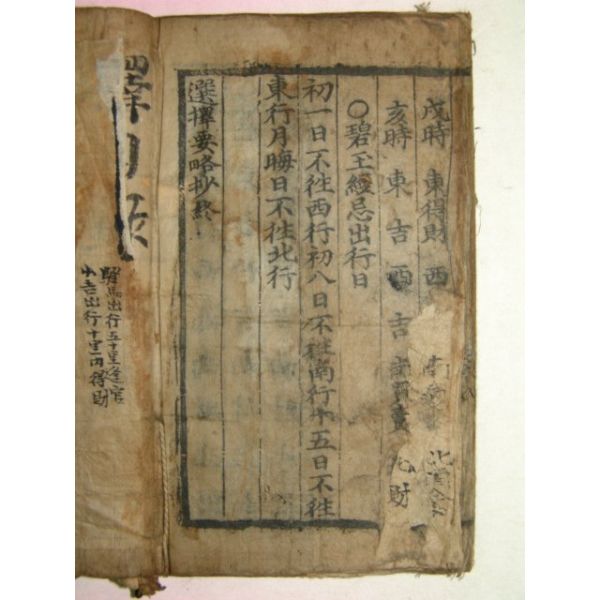 戌時 東得財 西
亥時 東吉 西吉 北財
〇碧玉經忌出行日
初一日不徃西行初八日不徃南行十五日不徃
東行月晦日不徃北行
選擇要略抄終
擇日
驛馬出行五十里逢官
小吉出行十里內得財